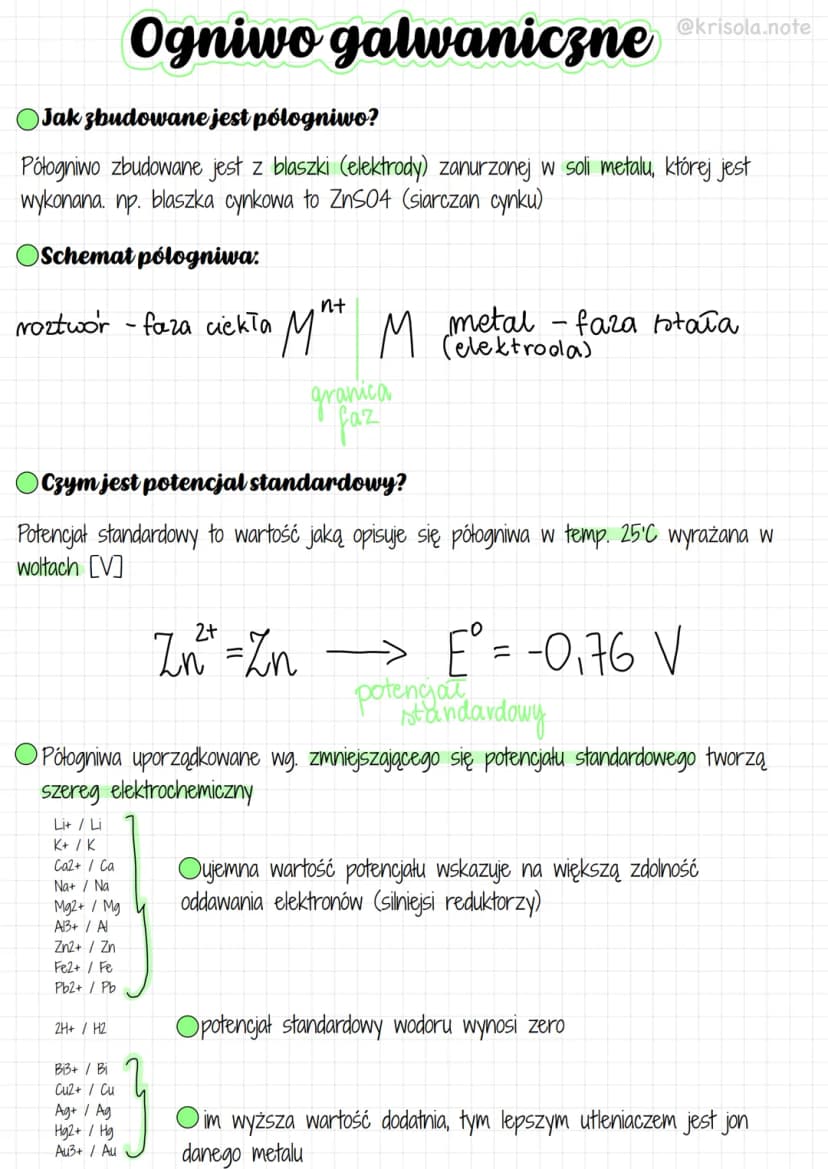 Ogniwo galwaniczne
@krisola.note
Jak zbudowane jest półogniwo?
Półogniwo zbudowane jest z blaszki (elektrody) zanurzonej w soli metalu, której jest
wykonana. np. blaszka cynkowa to ZnSO4 (siarczan cynku)
Schemat półogniwa:
roztwór - faza ciekła Mⁿ⁺ | M metal - faza stała
(elektroda)
granica
faz
Czym jest potencjał standardowy?
Potencjał standardowy to wartość jaką opisuje się półogniwa w temp. 25°C wyrażana w
woltach [V]
Zn²⁺ = Zn ⟶ E⁰ = -0,76 V
potencjał
standardowy
Półogniwa uporządkowane wg. zmniejszającego się potencjału standardowego tworzą
szereg elektrochemiczny
Li+ / Li
K+ / K
Ca2+ / Ca
Na+ / Na
Mg2+ / Mg
Al3+ / Al
Zn2+ / Zn
Fe2+ / Fe
Pb2+ / Pb
ujemna wartość potencjału wskazuje na większą zdolność
oddawania elektronów (silniejsi reduktorzy)
2H+ / H2
potencjał standardowy wodoru wynosi zero
Bi3+ / Bi
Cu2+ / Cu
Ag+ / Ag
Hg2+ / Hg
Au3+ / Au
im wyższa wartość dodatnia, tym lepszym utleniaczem jest jon
danego metalu